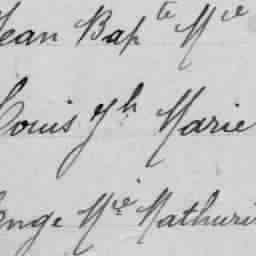 Jean Bap te M ie
Louis Jh Marie
Ange M ie Mathuri